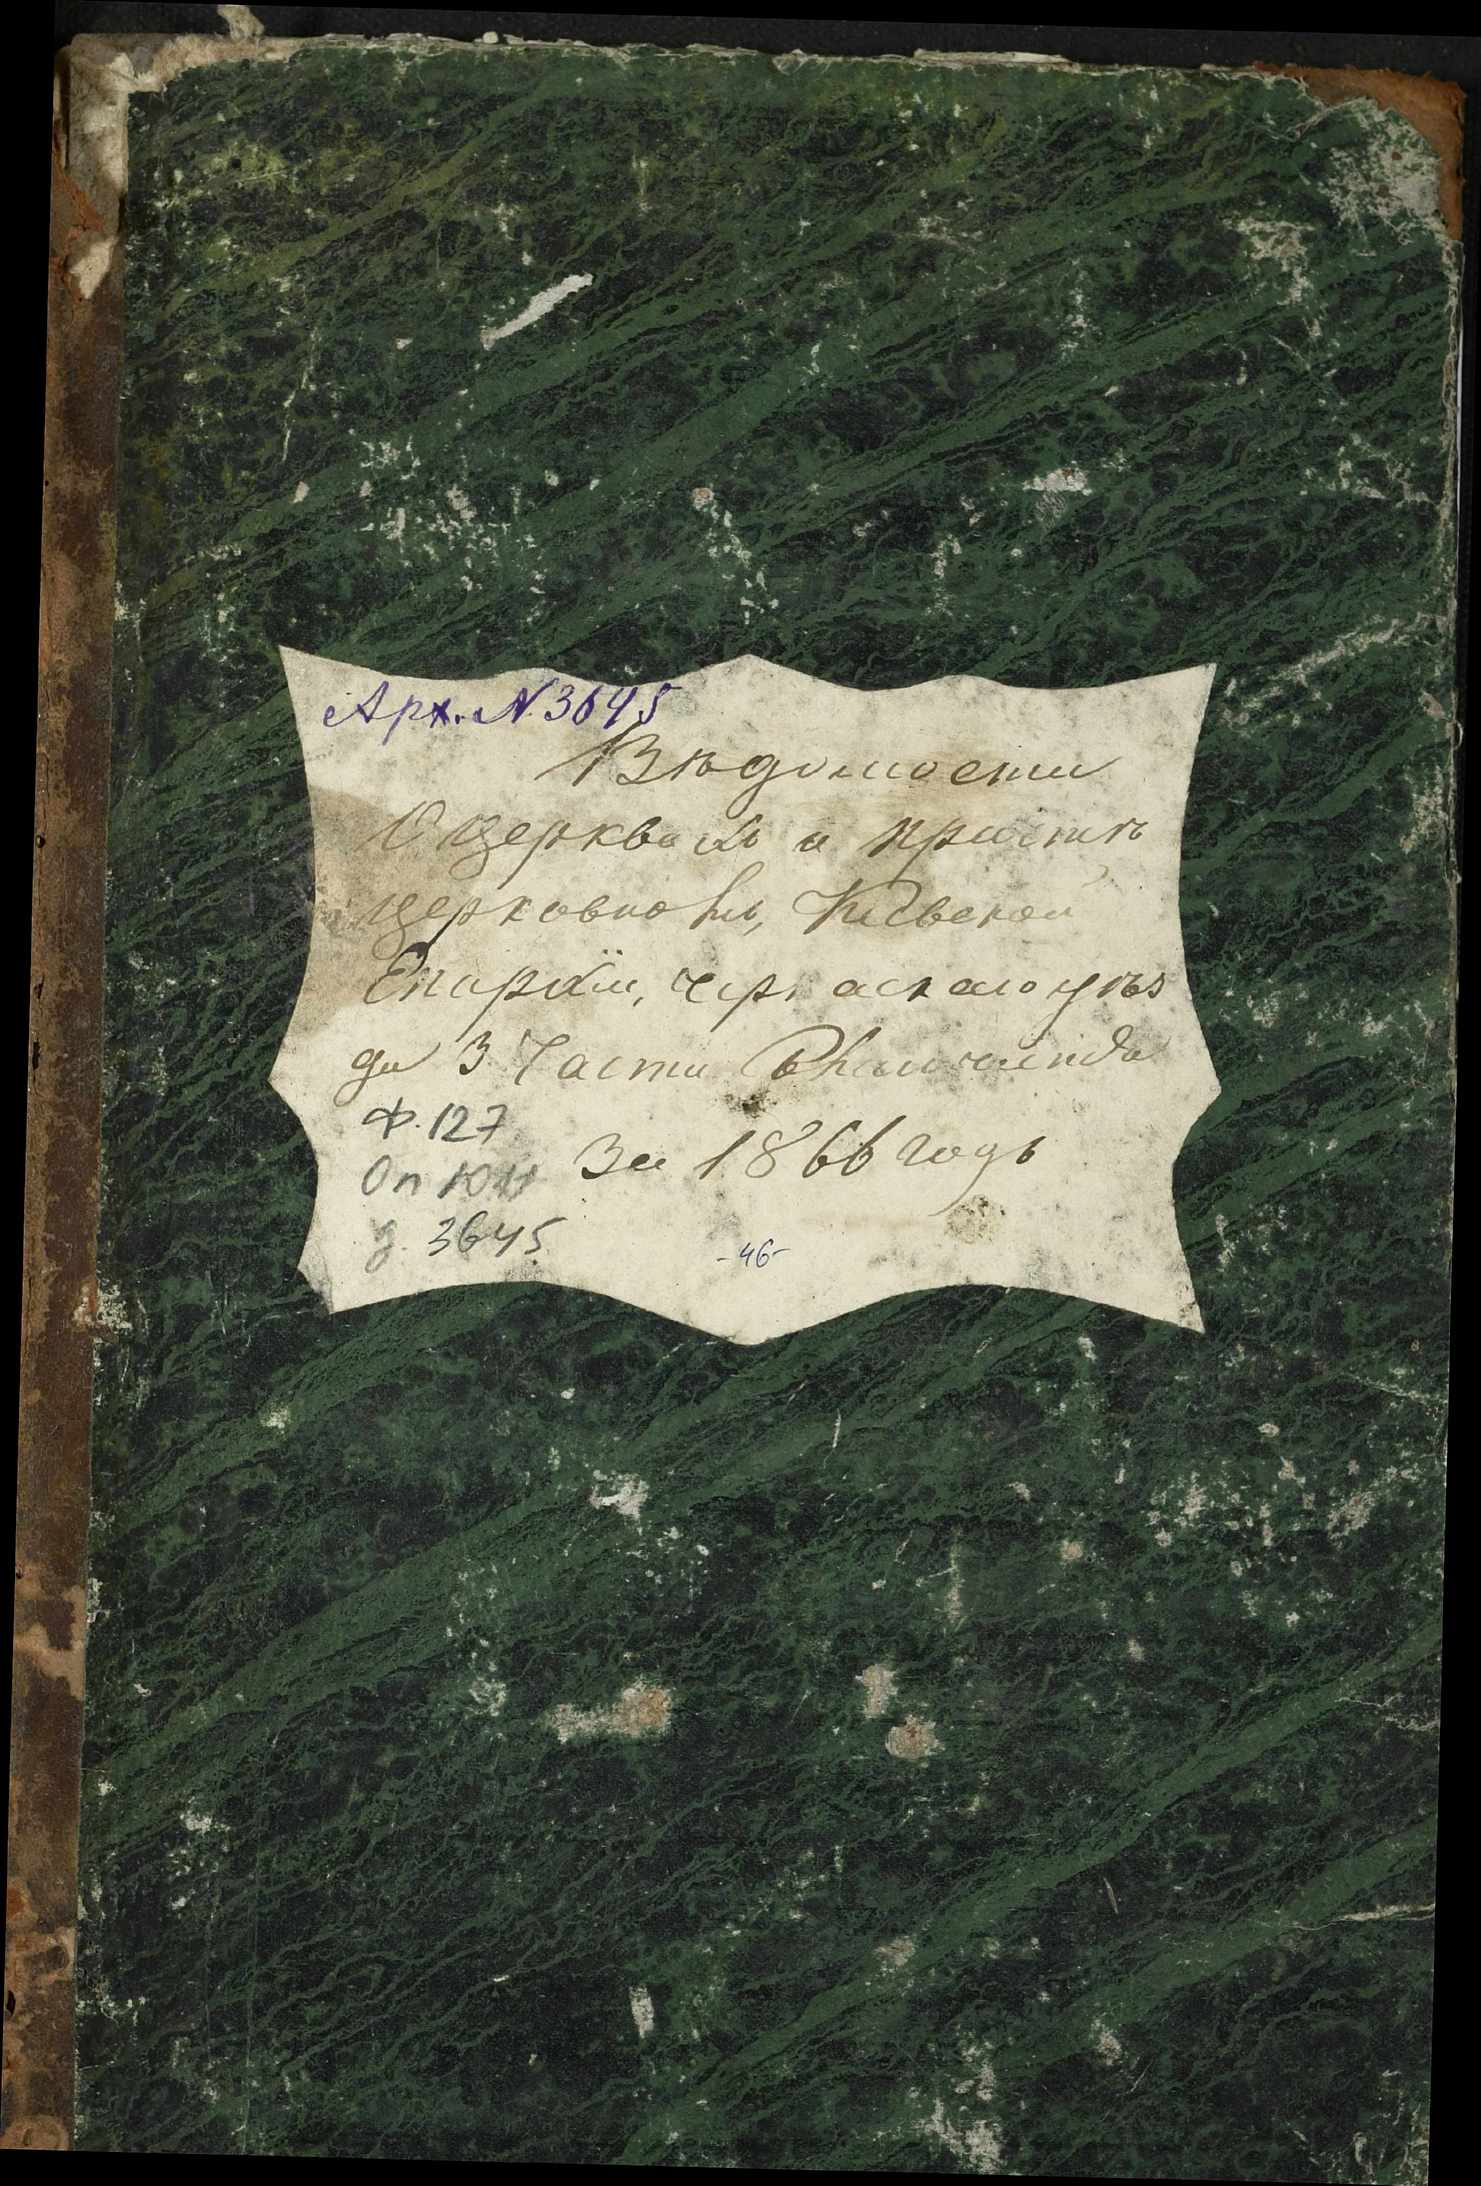 Арх. N. 3645
Вѣдомости
О Церквахъ и причтѣ
церковномъ, Кіевской
Епархіи, Черкаскаго уѣз
да 3 Части Благочинія
За 1866 годъ
Ф. 127
Оп 1011
д. 3645
-46-